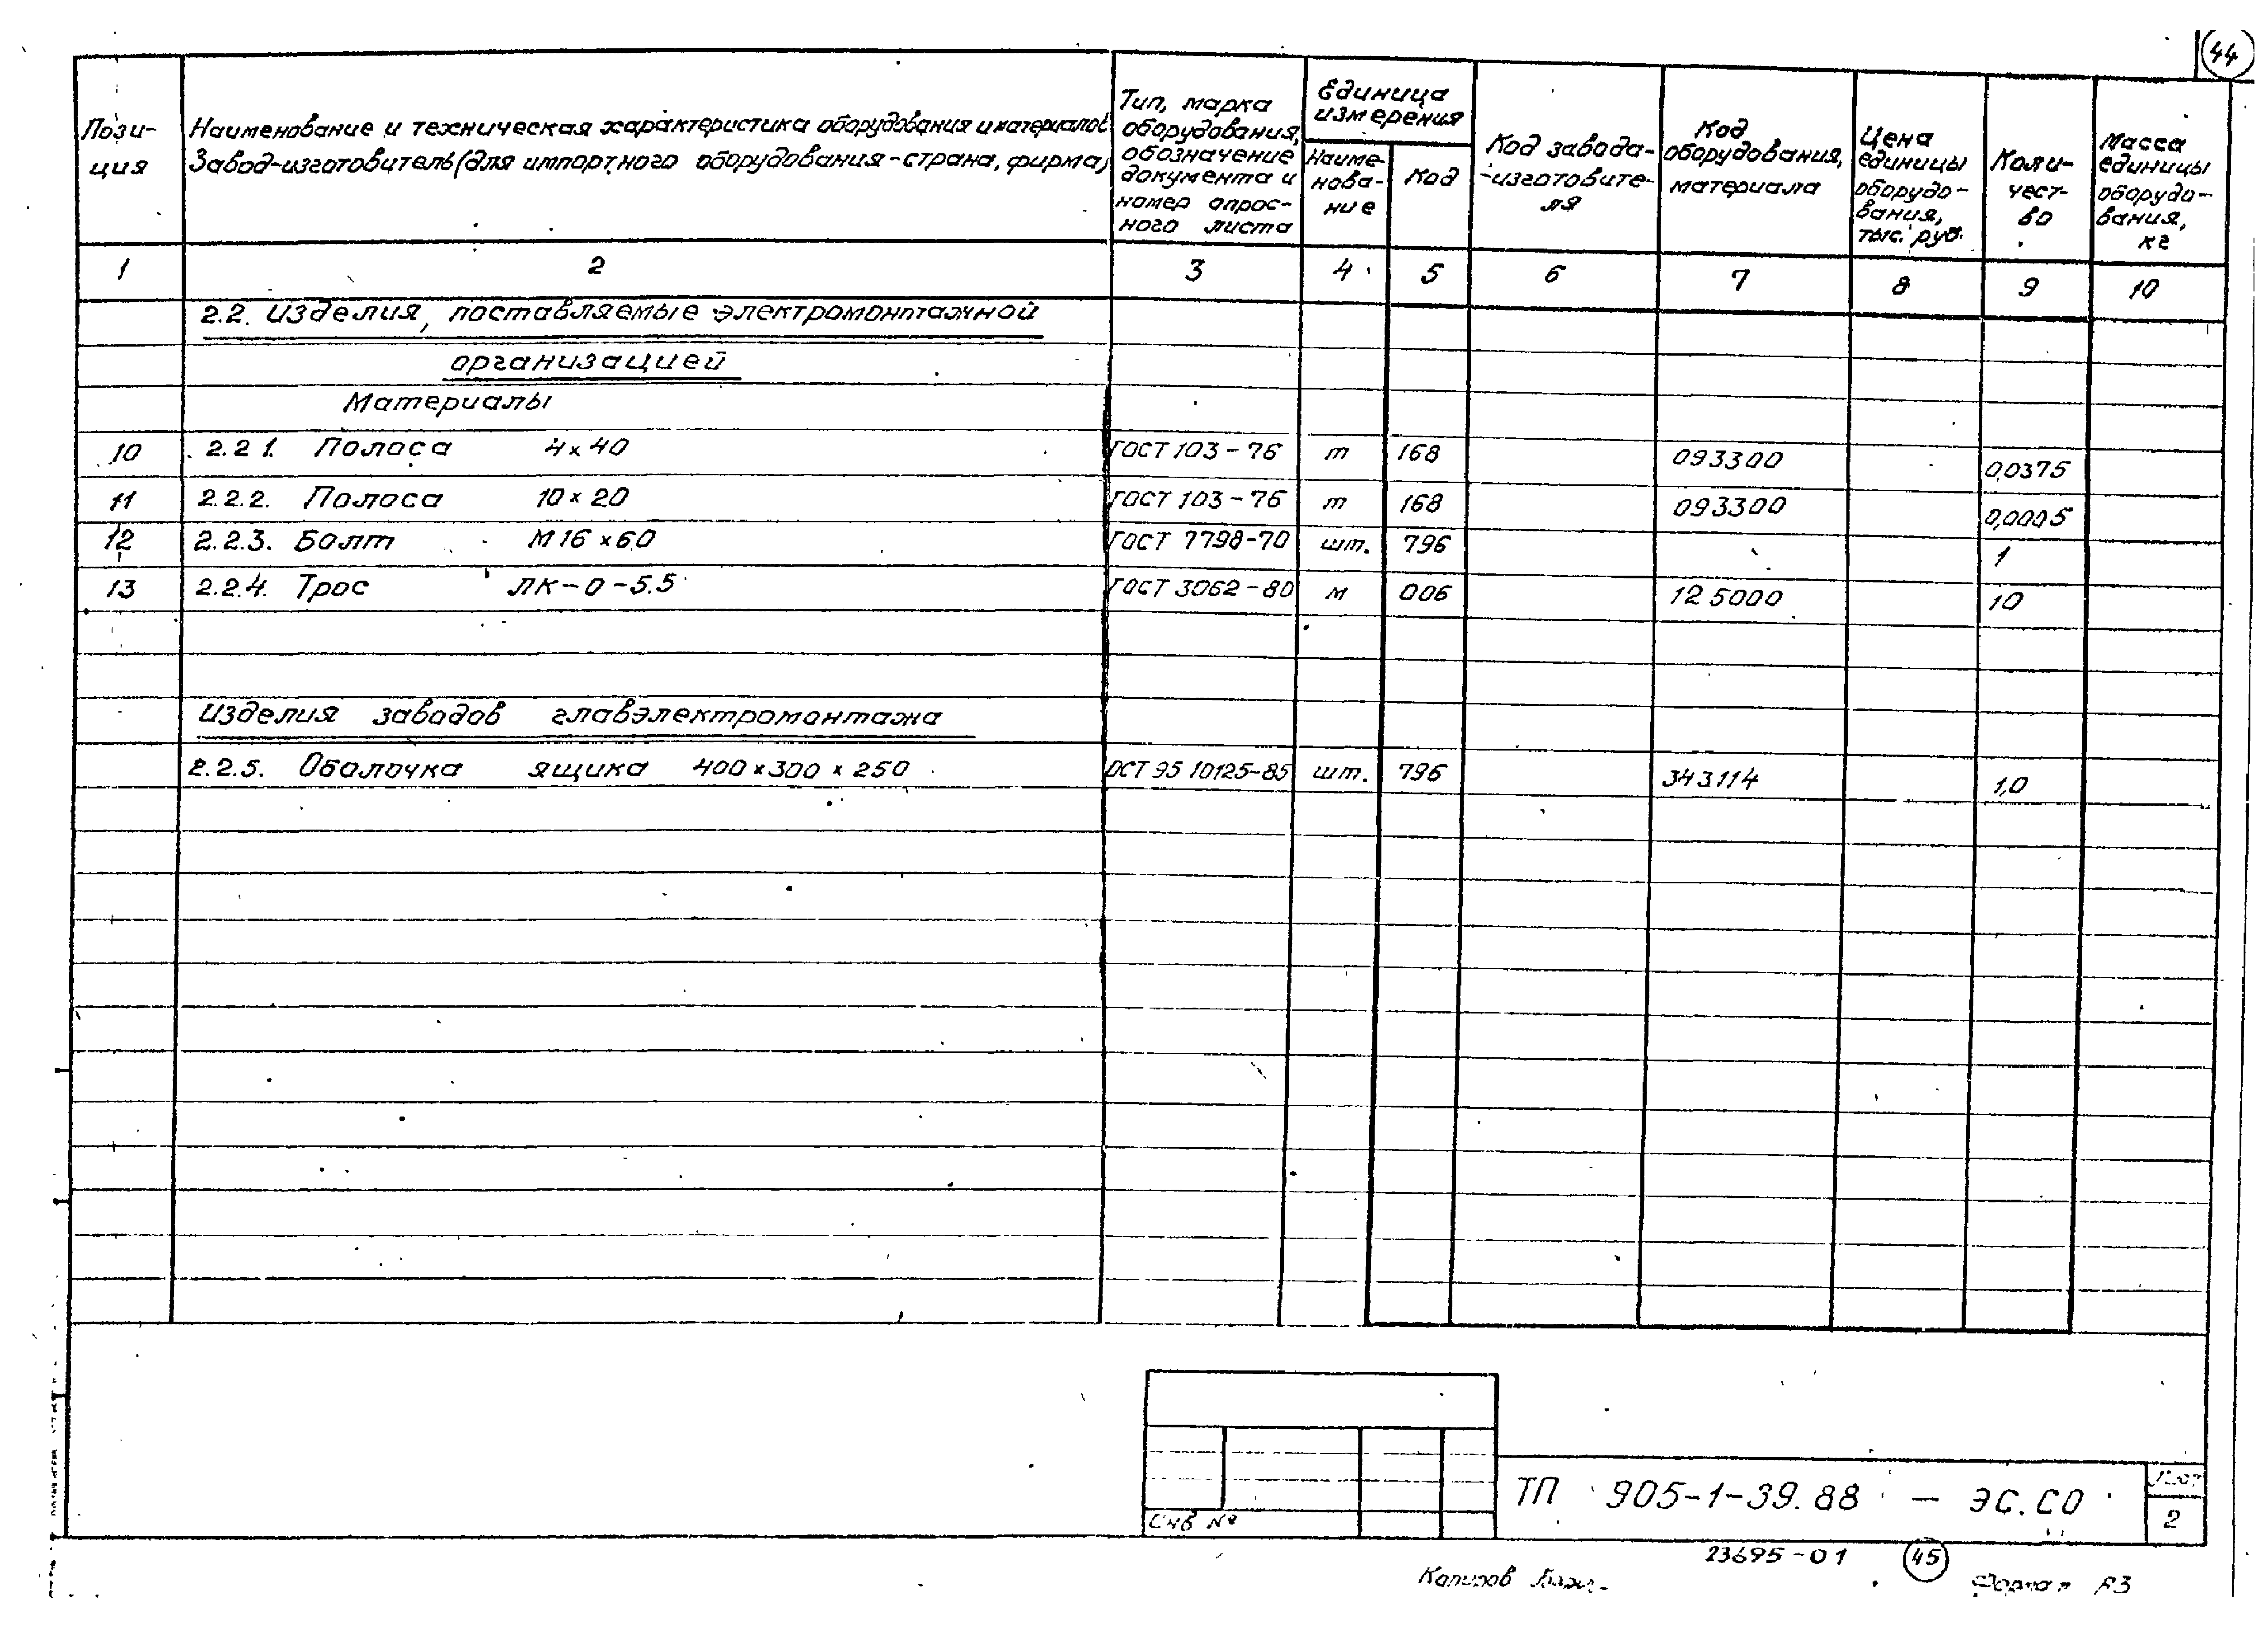 44
Пози-
ция
Наименование и техническая характеристика оборудования и материалов
Завод-изготовитель (для импортного оборудования-страна, фирма)
Тип, марка
оборудования,
обозначение
документа и
номер опрос-
ного листа
Единица
измерения
Наиме-
нова-
ние
Код
Код завода-
-изготовите-
ля
Код
оборудования,
материала
Цена
единицы
оборудо-
вания,
тыс. руб.
Коли-
чест-
во
Масса
единицы
оборудо-
вания,
кг
1 2 3 4 5 6 7 8 9 10
2.2. Изделия, поставляемые электромонтажной
организацией
Материалы
10 2.2 1. Полоса 4×40 ГОСТ 103-76 т 168 093300 0,0375
11 2.2.2. Полоса 10×20 ГОСТ 103-76 т 168 093300 0,0005
12 2.2.3. Болт М16×60 ГОСТ 7798-70 шт. 796 1
13 2.2.4. Трос ЛК-0-5.5 ГОСТ 3062-80 м 006 125000 10
Изделия заводов главэлектромонтажа
2.2.5. Оболочка ящика 400×300×250 ОСТ 95 10125-85 шт. 796 343114 1,0
Инв №
ТП 905-1-39.88 - ЭС.СО
Лист
2
23695-01 45
Копиров
Формат А3